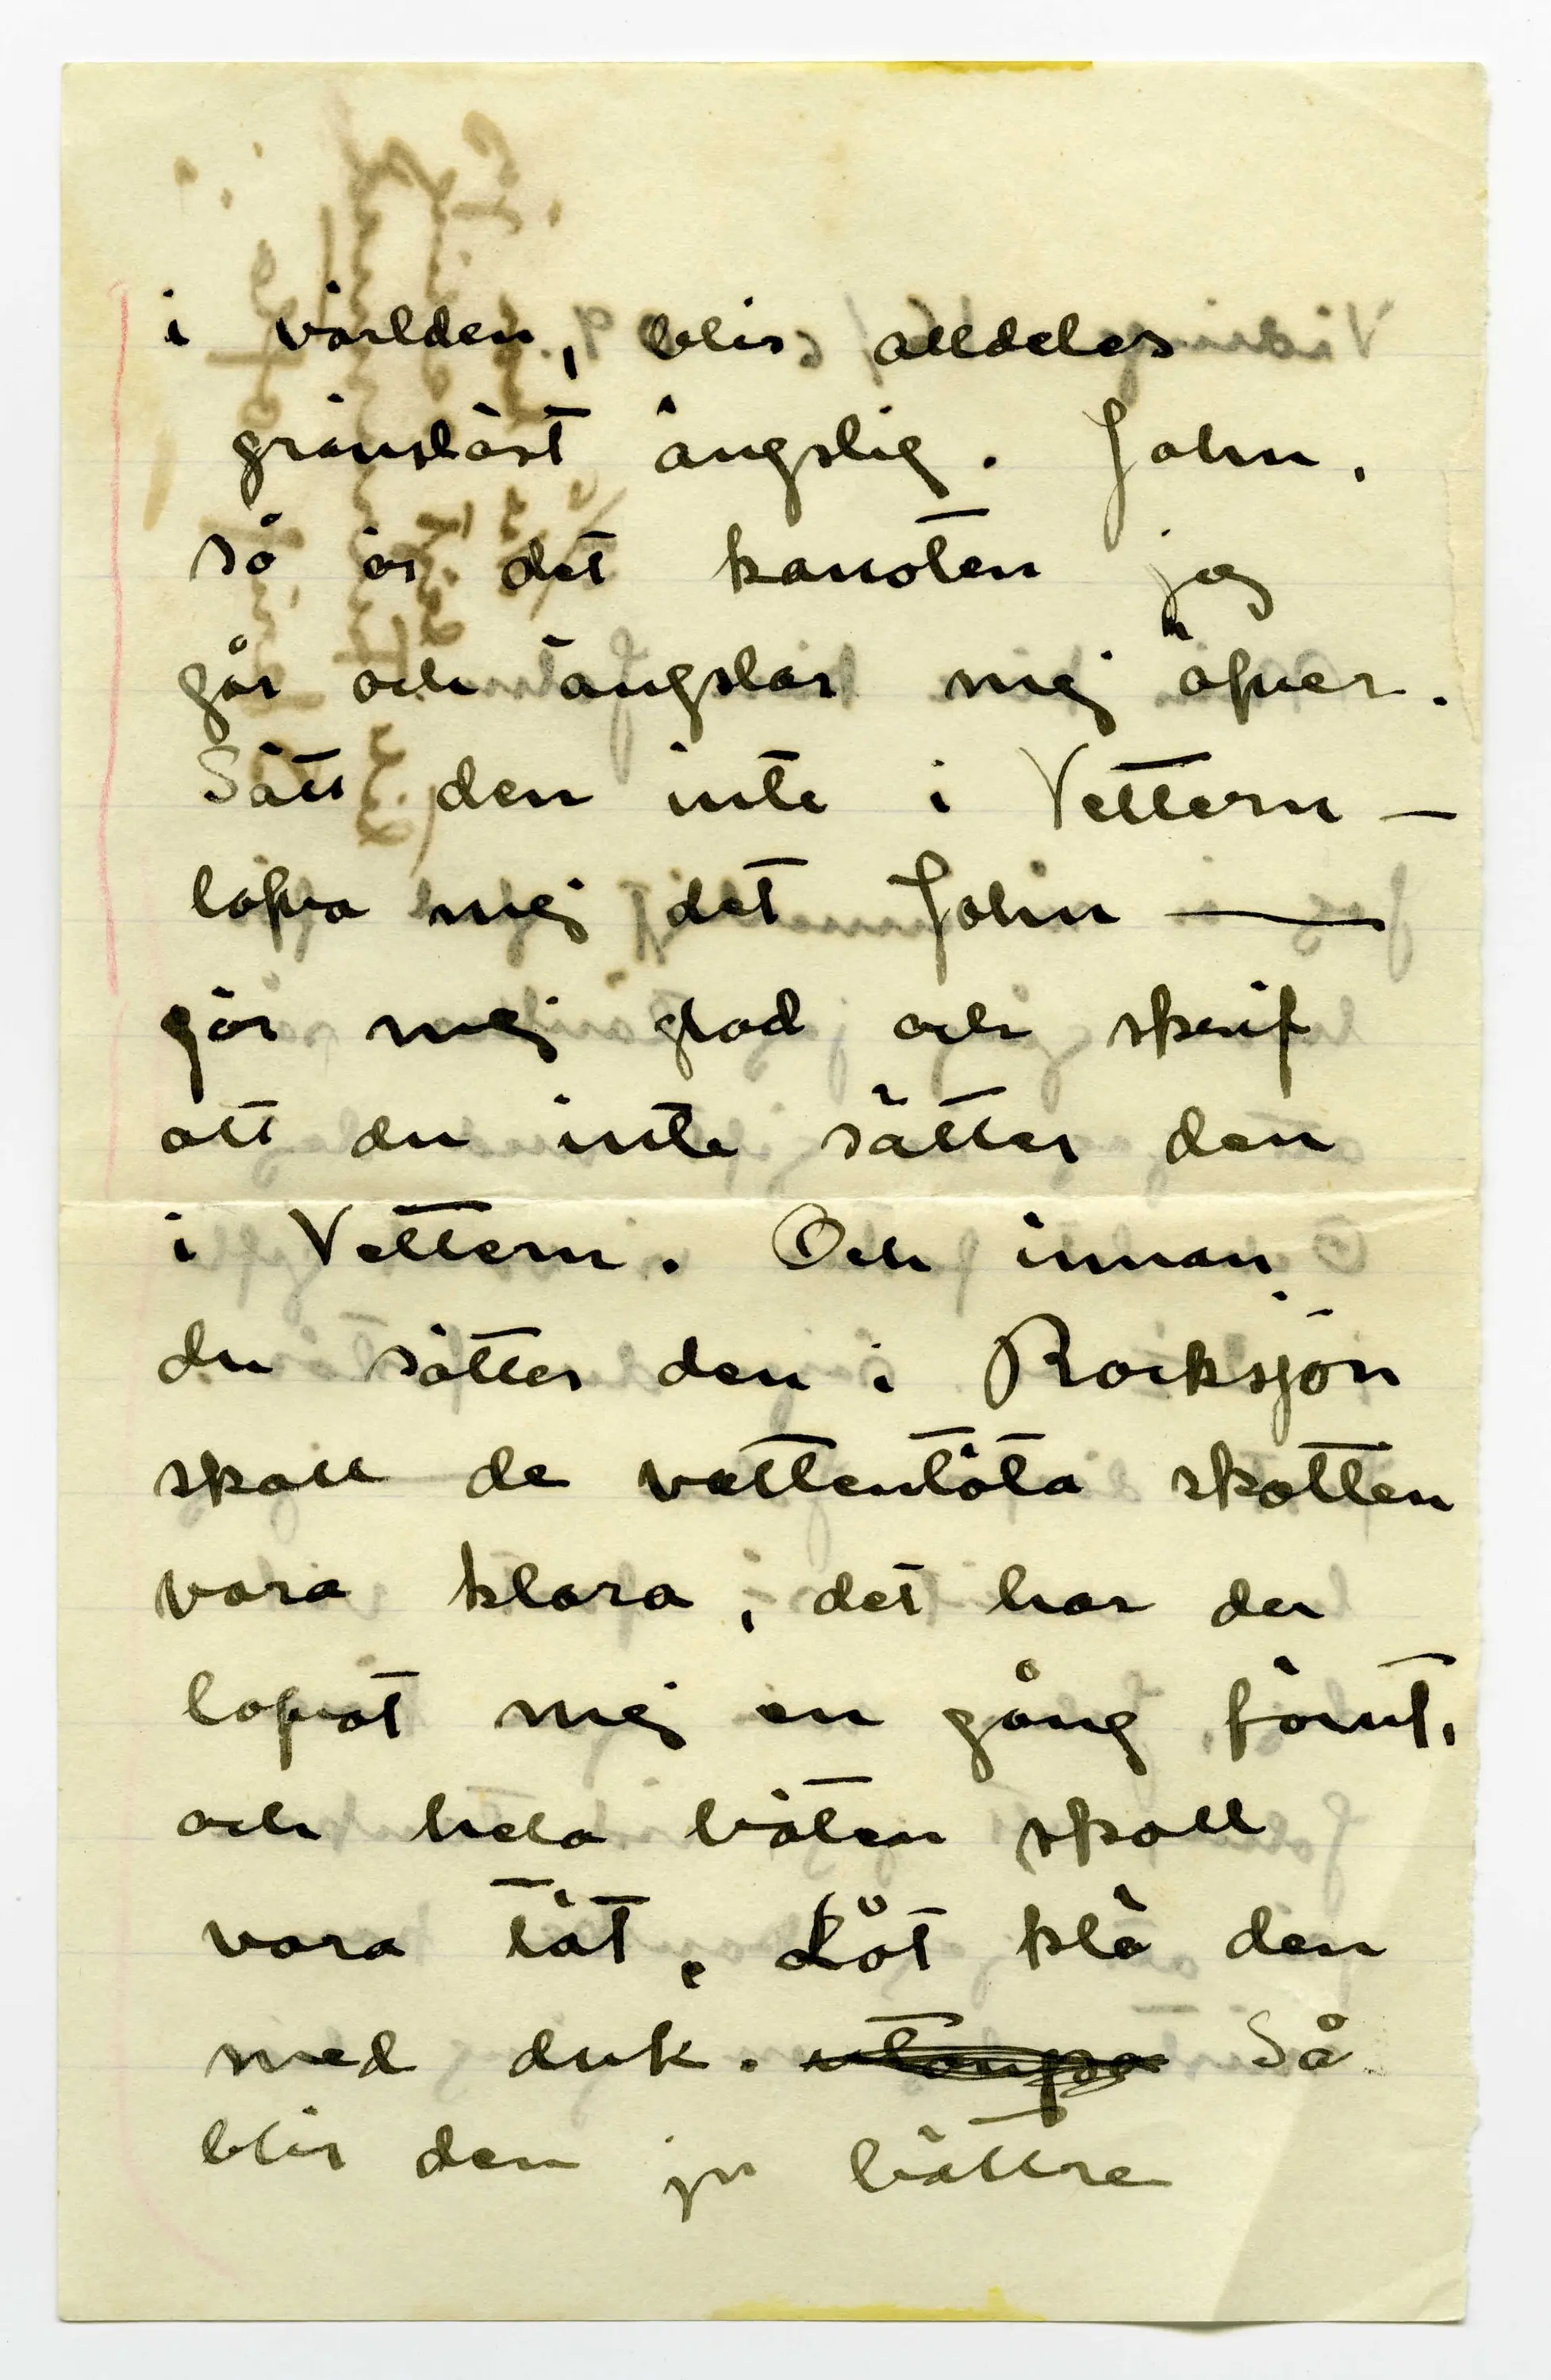 i världen, blir alldeles
gränslöst ängslig. John,
så är det kanoten jag
går och ängslar mig öfver.
Sätt den inte i Vettern —
lofva mig det John —
gör mig glad och skrif
att du inte sätter den
i Vettern. Och innan
du sätter den i Rocksjön
skall de vattentäta skotten
vara klara, det har du
lofvat mig en gång förut,
och hela båten skall
vara tät. Låt klä den
med duk. utanpå Så
blir den ju bättre